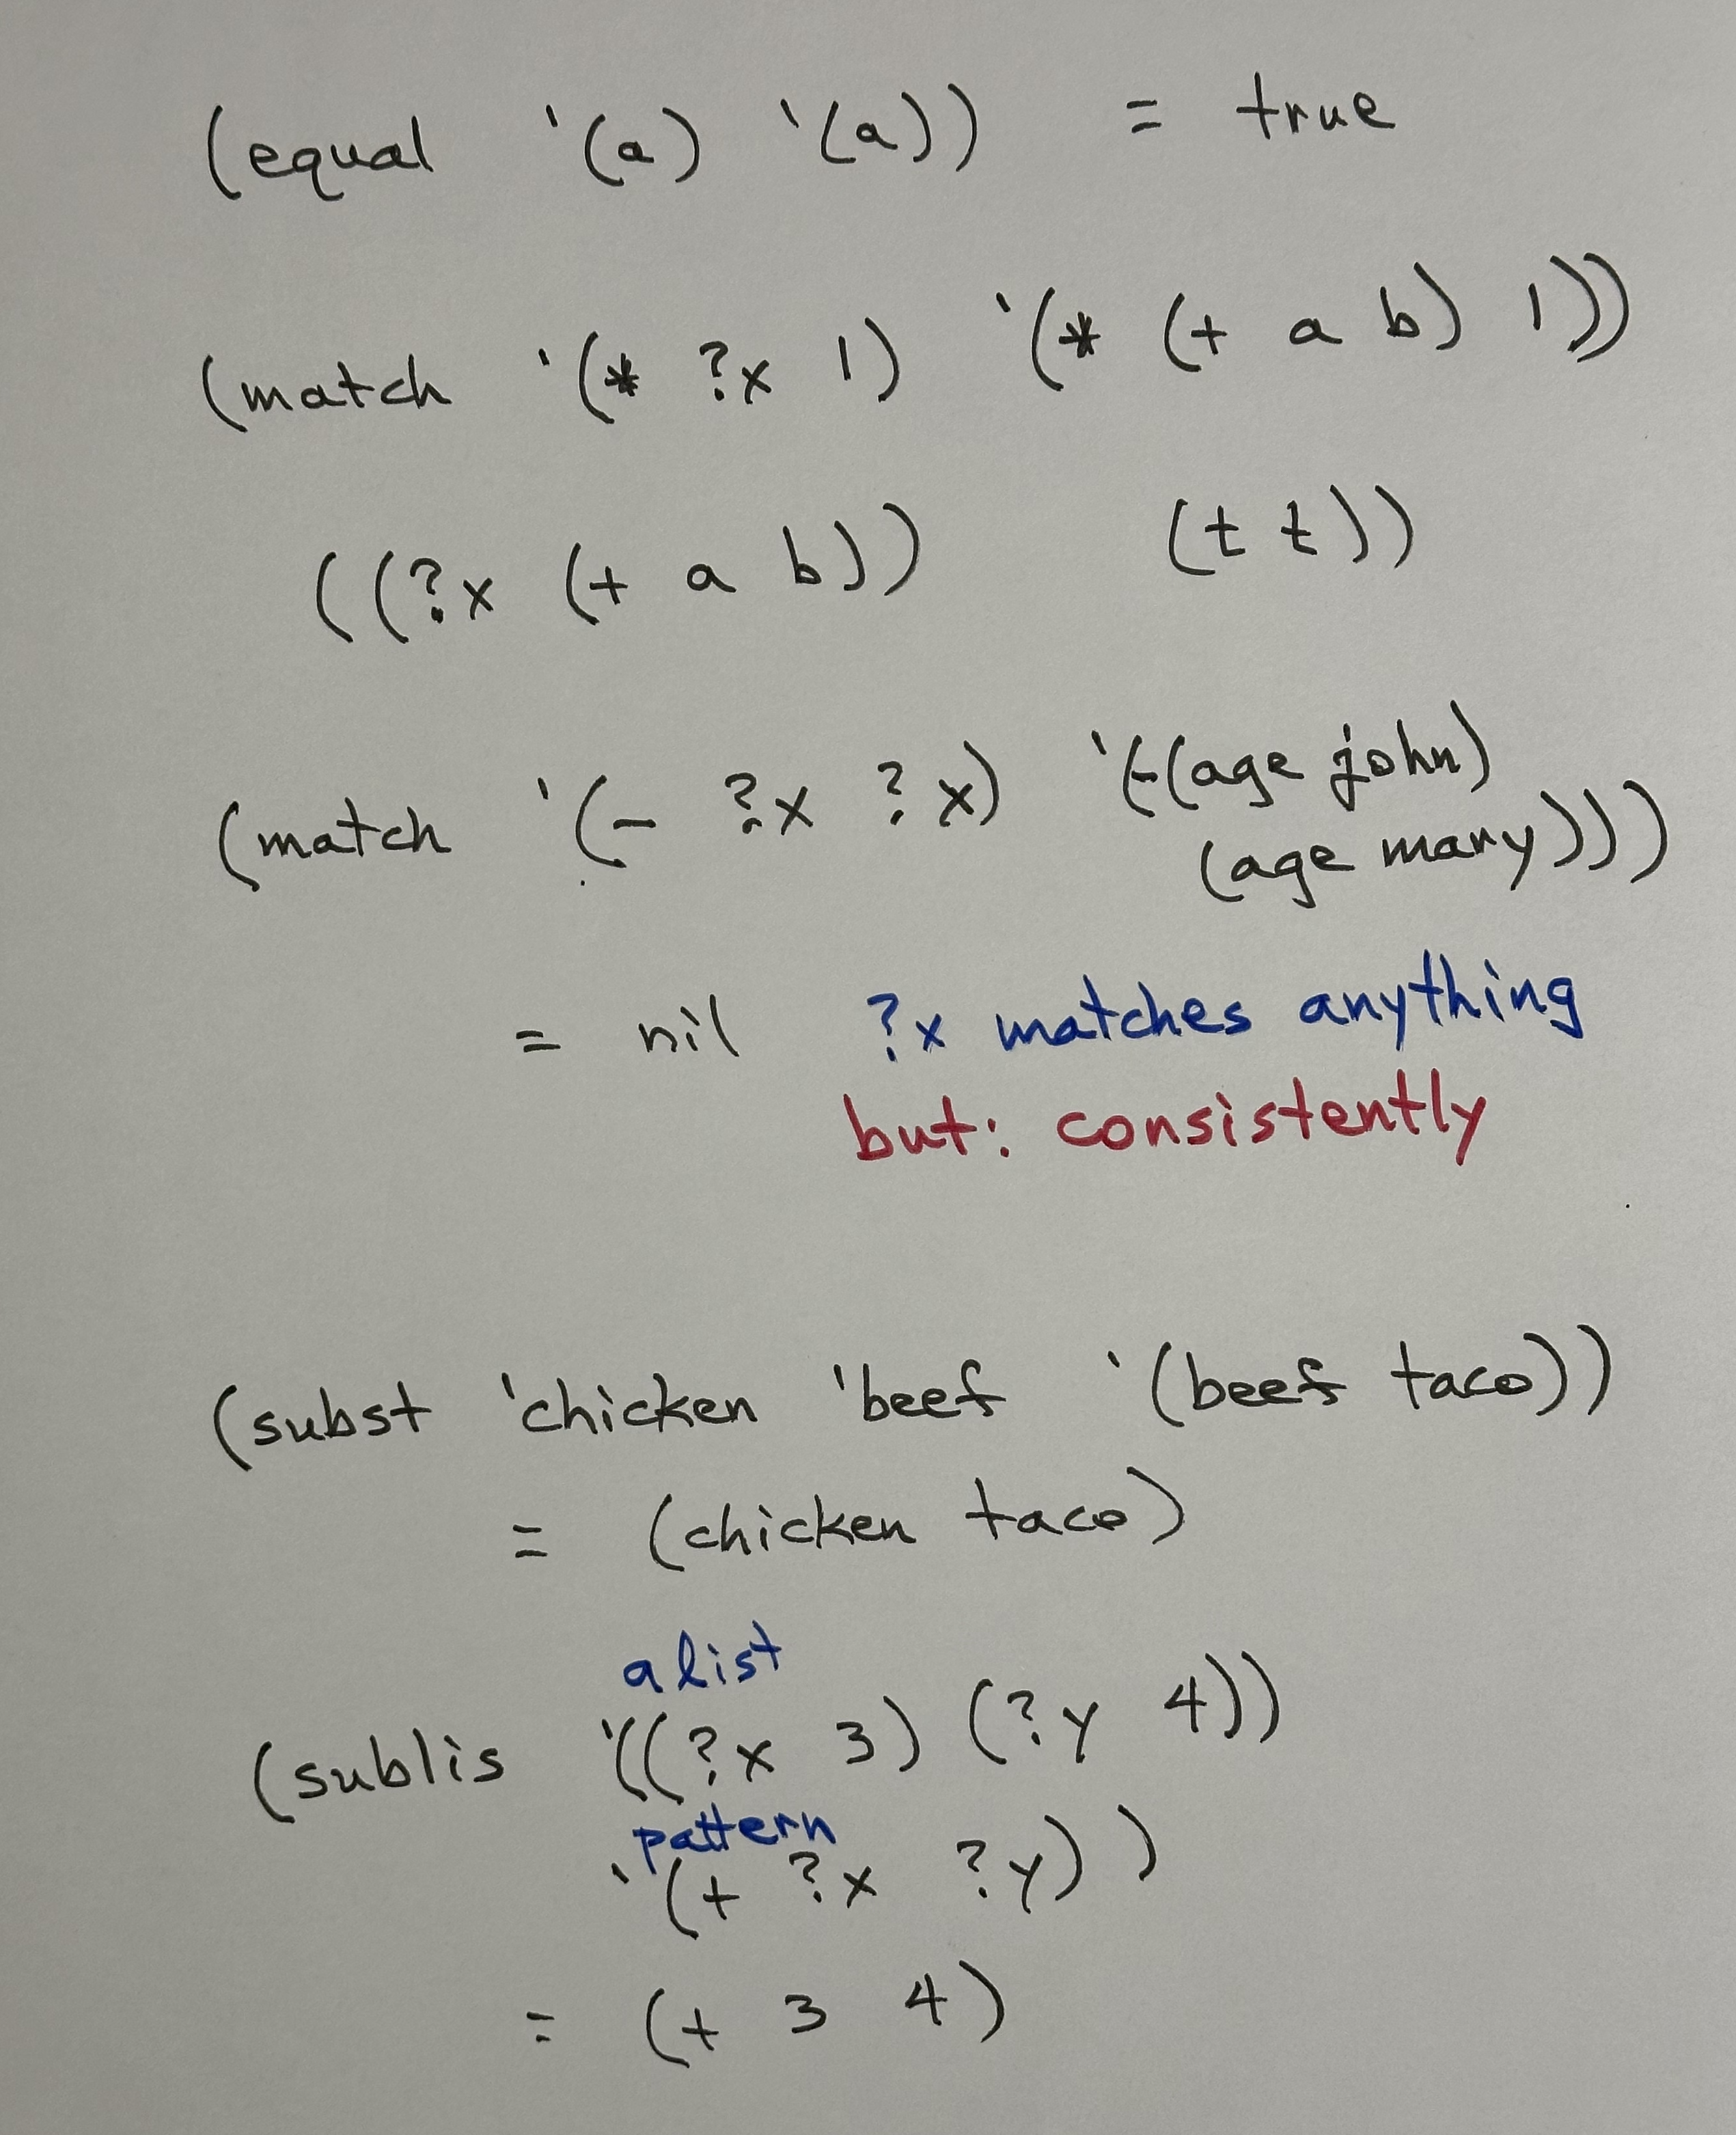 (equal '(a) '(a)) = true
(match '(* ?x 1) '(* (+ a b) 1))
((?x (+ a b)) (t t))
(match '(- ?x ?x) '(-(age john)
(age mary)))
= nil ?x matches anything
but: consistently
(subst 'chicken 'beef '(beef taco))
= (chicken taco)
alist
(sublis '((?x 3) (?y 4))
pattern
'(+ ?x ?y) )
= (+ 3 4)